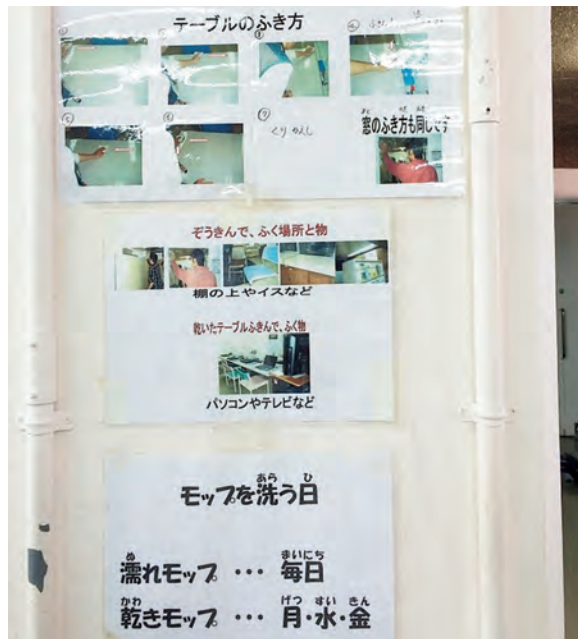 テーブルのふき方
①
⑤
⑥
⑦
くりかえし
窓のふき方も同じです
ぞうきんで、ふく場所と物
棚の上やイスなど
乾いたテーブルふきんで、ふく物
パソコンやテレビなど
モップを洗う日
濡れモップ … 毎日
乾きモップ … 月・水・金